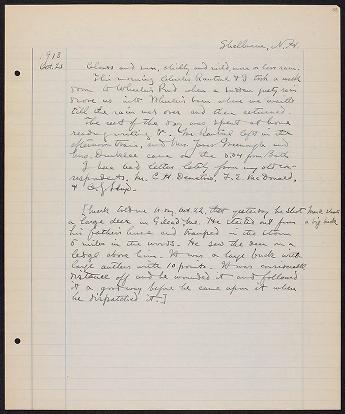 Shelburne, N.H.
1913
Oct. 23
Clouds and sun, chilly and wild, more or less rain.
This morning Charles Kendall & I took a walk
down to Wheeler's Pond when a sudden gusty rain
drove us into Wheeler's barn where we waited
till the rain was over and then returned.
The rest of the day was spent at home
reading writing &c. Mr. Kendall left in the
afternoon train, and Mrs.
Mrs. came on the 5.04 from
I have had letters lately from my old cor-
respondents, Mr. C. H. , F. E. MacDonald,
&
told me to-day Oct. 22, that yesterday he shot
a large deer in Gilead, Me. He started out from
a big buck
his father's house and tramped in the storm
5 miles in the woods. He saw the deer on a
ledge above him. It was a large buck with
large antlers with 10 points. It was considerable
distance off and he wounded it and followed
it a good way before he came upon it when
he dispatched it.]